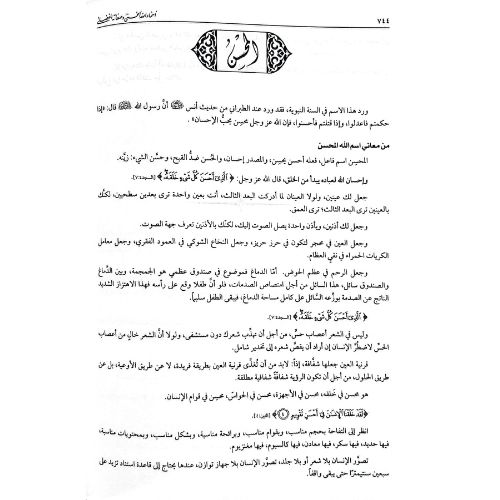 ٧٤٤
المحسن
ورد هذا الاسم في السنة النبوية، فقد ورد عند الطبراني من حديث أنس ﷺ أنَّ رسول الله ﷺ قال: «إذا
حكمتم فاعدلوا، وإذا قتلتم فأحسنوا، فإن الله عز وجل محسن يحبُّ الإحسان»
من معاني اسم الله المحسن
المحسن اسم فاعل، فعله أحسن يحسن، والمصدر إحسان، والحُسن ضدُّ القبيح، وحسَّن الشيء: زيَّنه.
وإحسان الله لعباده يبدأ من الخلق، قال الله عز وجل: ﴿ٱلَّذِىٓ أَحۡسَنَ كُلَّ شَىۡءٍ خَلَقَهُۥ﴾
جعل لك عينين، ولولا العينان لما أدركت البعد الثالث، أنت بعين واحدة ترى بعدين سطحيين، لكنَّك
بالعينين ترى البعد الثالث؛ ترى العمق.
وجعل لك أذنين، وبأذن واحدة يصل الصوت إليك، لكنَّك بالأذنين تعرف جهة الصوت.
وجعل العين في محجر لتكون في حرز حريز، وجعل النخاع الشوكي في العمود الفقري، وجعل معامل
الكريات الحمراء في نقي العظام.
وجعل الرحم في عظم الحوض. أمَّا الدماغ فموضوع في صندوق عظمي هو الجمجمة، وبين الدَّماغ
والصندوق سائل، هذا السائل من أجل امتصاص الصدمات، فلو أنَّ طفلا وقع على رأسه فهذا الاهتزاز الشديد
الناتج عن الصدمة يوزِّعه السَّائل على كامل مساحة الدماغ، فيبقى الطفل سليماً.
﴿ٱلَّذِىٓ أَحۡسَنَ كُلَّ شَىۡءٍ خَلَقَهُۥ﴾
وليس في الشعر أعصاب حسٍّ، من أجل أن تهذِّب شعرك دون مستشفى، ولولا أنَّ الشعر خالٍ من أعصاب
الحسِّ لاضطُرَّ الإنسان إن أراد أن يقصَّ شعره إلى تخدير شامل.
قرنية العين جعلها شفَّافة، إذاً: لابد من أن تُغذَّى قرنية العين بطريقة فريدة، لا عن طريق الأوعية، بل عن
طريق الحلول، من أجل أن تكون الرؤية شفافةً شفافية مطلقة.
هو محسن في خلقه، محسن في الأجهزة، محسن في الحواسِّ، محسن في قوام الإنسان.
﴿لَقَدۡ خَلَقۡنَا ٱلۡإِنسَٰنَ فِىٓ أَحۡسَنِ تَقۡوِيمٍ﴾
انظر إلى التفاحة بحجم مناسب، وبقوام مناسب، وبرائحة مناسبة، وبشكل مناسب، وبمحتويات مناسبة،
فيها حديد، فيها سكر، فيها معادن، فيها كالسيوم، فيها مغنزيوم.
تصوَّر الإنسان بلا شعر أو بلا جلد، تصوَّر الإنسان بلا جهاز توازن، عندها يحتاج إلى قاعدة استناد تزيد على
سبعين سنتيمتراً حتى يبقى واقفاً.